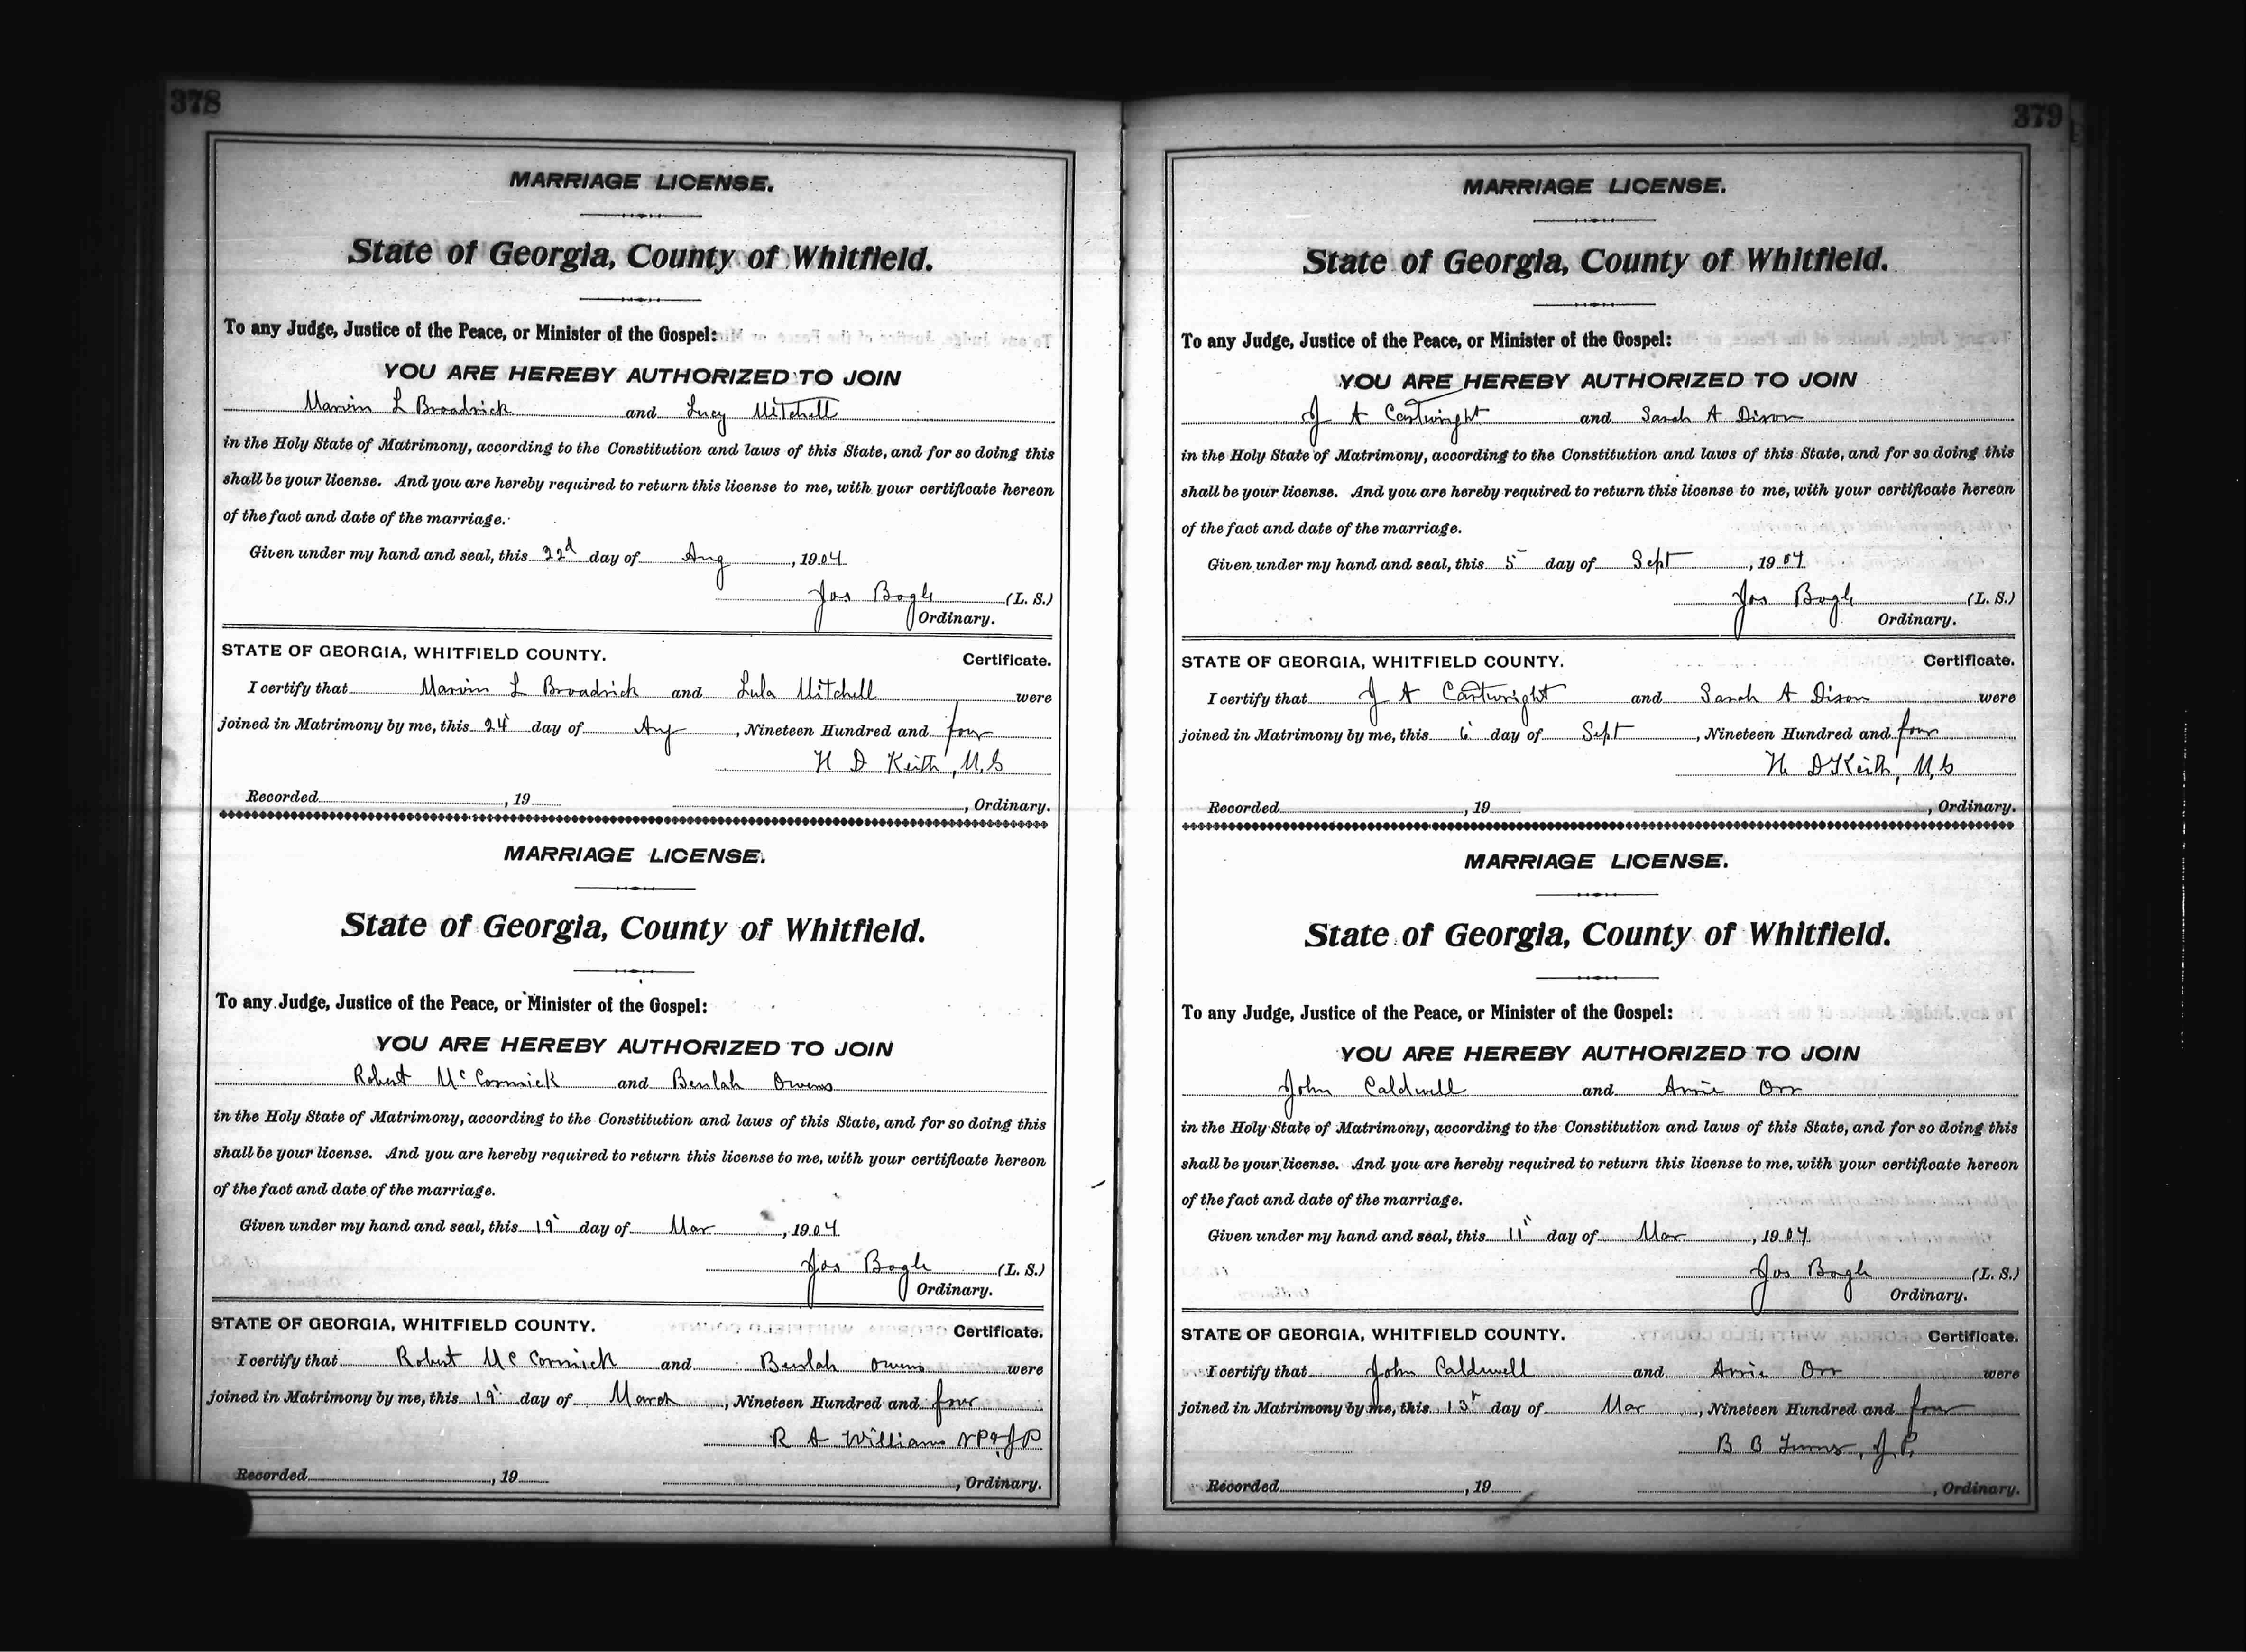 378
MARRIAGE LICENSE.
State of Georgia, County of Whitfield.
To any Judge, Justice of the Peace, or Minister of the Gospel:
YOU ARE HEREBY AUTHORIZED TO JOIN
Marvin L Broadrick and Lucy Mitchell
in the Holy State of Matrimony, according to the Constitution and laws of this State, and for so doing this
shall be your license. And you are hereby required to return this license to me, with your certificate hereon
of the fact and date of the marriage.
Given under my hand and seal, this 22d day of Aug, 1904
Jos Bogle (L. S.)
Ordinary.
STATE OF GEORGIA, WHITFIELD COUNTY. Certificate.
I certify that Marvin L Broadrick and Lula Mitchell were
joined in Matrimony by me, this 24 day of Aug, Nineteen Hundred and four
H D Keith, M.G
Recorded, 19 , Ordinary.
MARRIAGE LICENSE.
State of Georgia, County of Whitfield.
To any Judge, Justice of the Peace, or Minister of the Gospel:
YOU ARE HEREBY AUTHORIZED TO JOIN
Robert McCormick and Beulah Owens
in the Holy State of Matrimony, according to the Constitution and laws of this State, and for so doing this
shall be your license. And you are hereby required to return this license to me, with your certificate hereon
of the fact and date of the marriage.
Given under my hand and seal, this day of Mar, 1904
Jos Bogle (L. S.)
Ordinary.
STATE OF GEORGIA, WHITFIELD COUNTY. Certificate.
I certify that Robert McCormick and Beulah Owens were
joined in Matrimony by me, this day of March, Nineteen Hundred and four
R A Williams NP&JP
Recorded, 19 , Ordinary.
379
MARRIAGE LICENSE.
State of Georgia, County of Whitfield.
To any Judge, Justice of the Peace, or Minister of the Gospel:
YOU ARE HEREBY AUTHORIZED TO JOIN
J A Cartwright and Sarah A Dixon
in the Holy State of Matrimony, according to the Constitution and laws of this State, and for so doing this
shall be your license. And you are hereby required to return this license to me, with your certificate hereon
of the fact and date of the marriage.
Given under my hand and seal, this 5 day of Sept, 1904
Jos Bogle (L. S.)
Ordinary.
STATE OF GEORGIA, WHITFIELD COUNTY. Certificate.
I certify that J A Cartwright and Sarah A Dixon were
joined in Matrimony by me, this 6 day of Sept, Nineteen Hundred and four
H D Keith, M.G
Recorded, 19 , Ordinary.
MARRIAGE LICENSE.
State of Georgia, County of Whitfield.
To any Judge, Justice of the Peace, or Minister of the Gospel:
YOU ARE HEREBY AUTHORIZED TO JOIN
John Caldwell and Annie Orr
in the Holy State of Matrimony, according to the Constitution and laws of this State, and for so doing this
shall be your license. And you are hereby required to return this license to me, with your certificate hereon
of the fact and date of the marriage.
Given under my hand and seal, this 11 day of Mar, 1904
Jos Bogle (L. S.)
Ordinary.
STATE OF GEORGIA, WHITFIELD COUNTY. Certificate.
I certify that John Caldwell and Annie Orr were
joined in Matrimony by me, this 13 day of Mar, Nineteen Hundred and four
B B J. P.
Recorded, 19 , Ordinary.